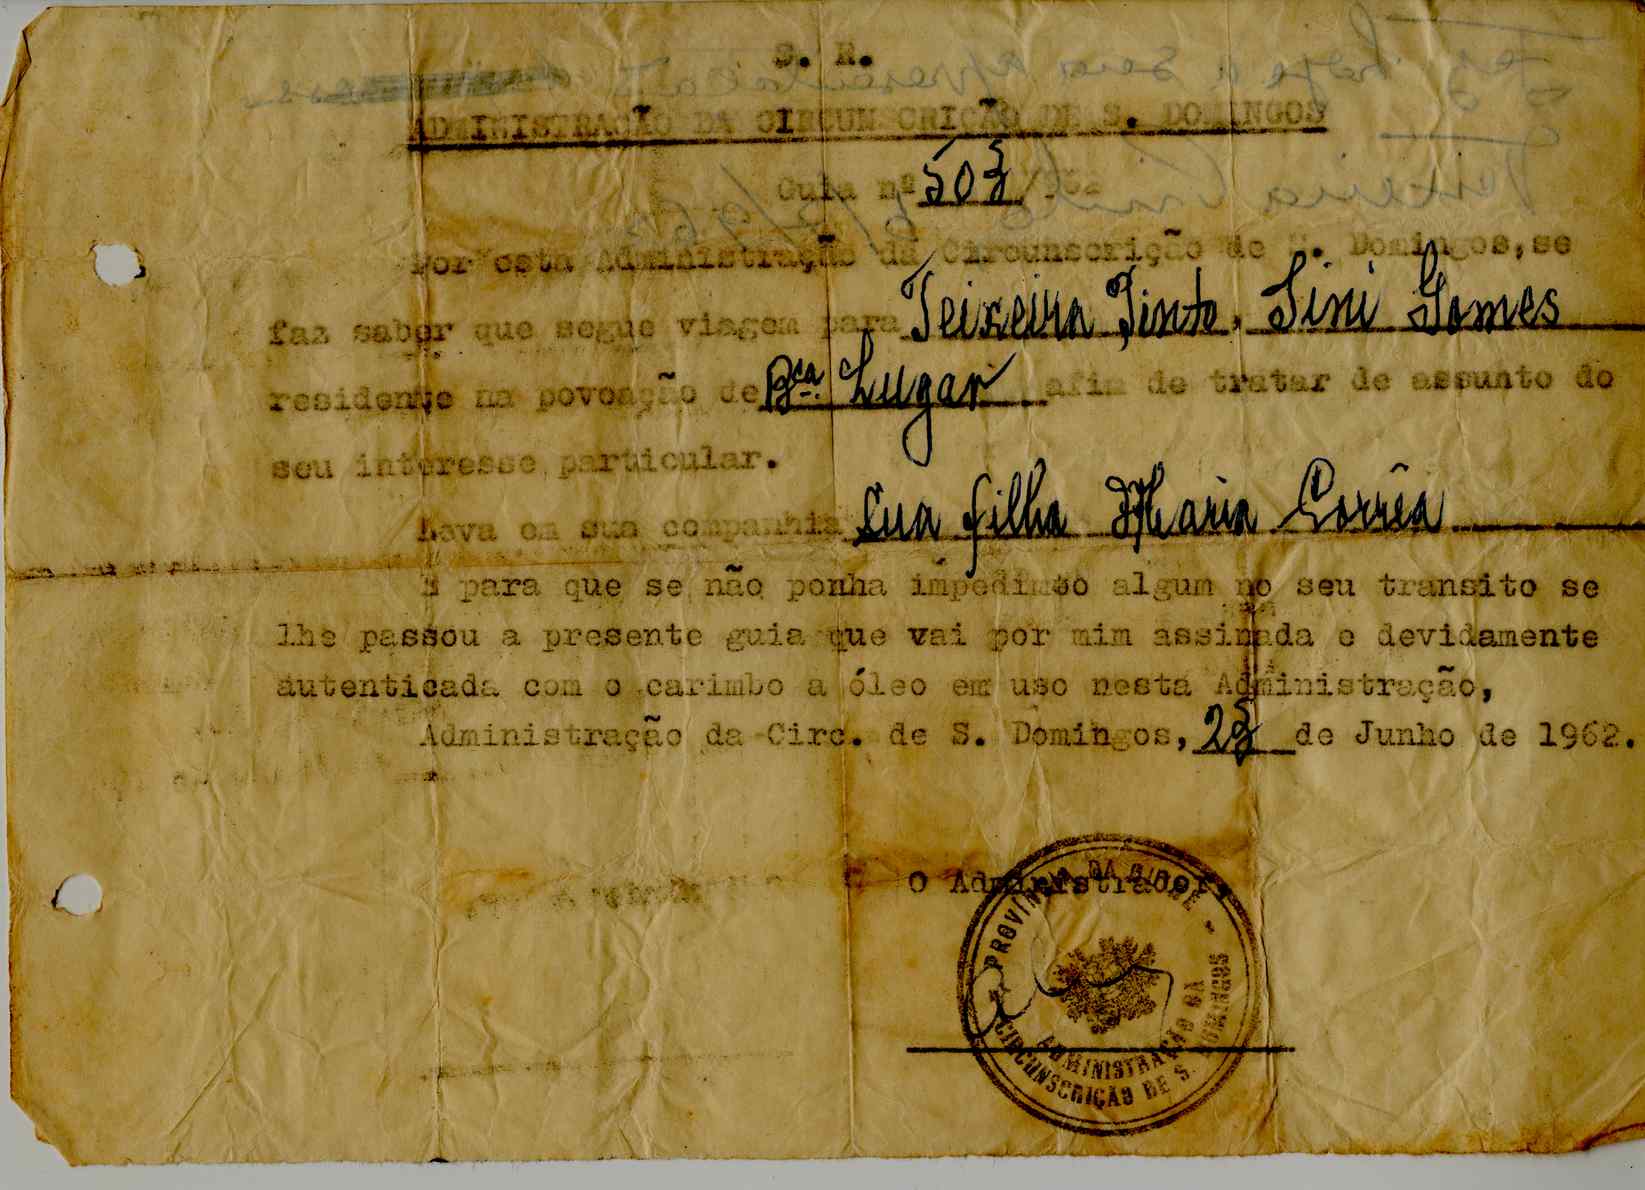 S. R.
ADMINISTRAÇÃO DA CIRCUNSCRIÇÃO DE S. DOMINGOS
Guia nº 503/962
Por esta Administração da Circunscrição de S. Domingos, se
faz saber que segue viagem para Teixeira Pinto, Sini Gomes
residente na povoação de Bca. Lugar afim de tratar de assunto do
seu interesse particular.
Leva em sua companhia sua filha Maria Corrêa
E para que se não ponha impedimto algum no seu transito se
lhe passou a presente guia que vai por mim assinada e devidamente
autenticada com o carimbo a óleo em uso nesta Administração,
Administração da Circ. de S. Domingos, 23 de Junho de 1962.
O Administrador,
PROVÍNCIA DA GUINÉ -
ADMINISTRAÇÃO DA
CIRCUNSCRIÇÃO DE S. DOMINGOS